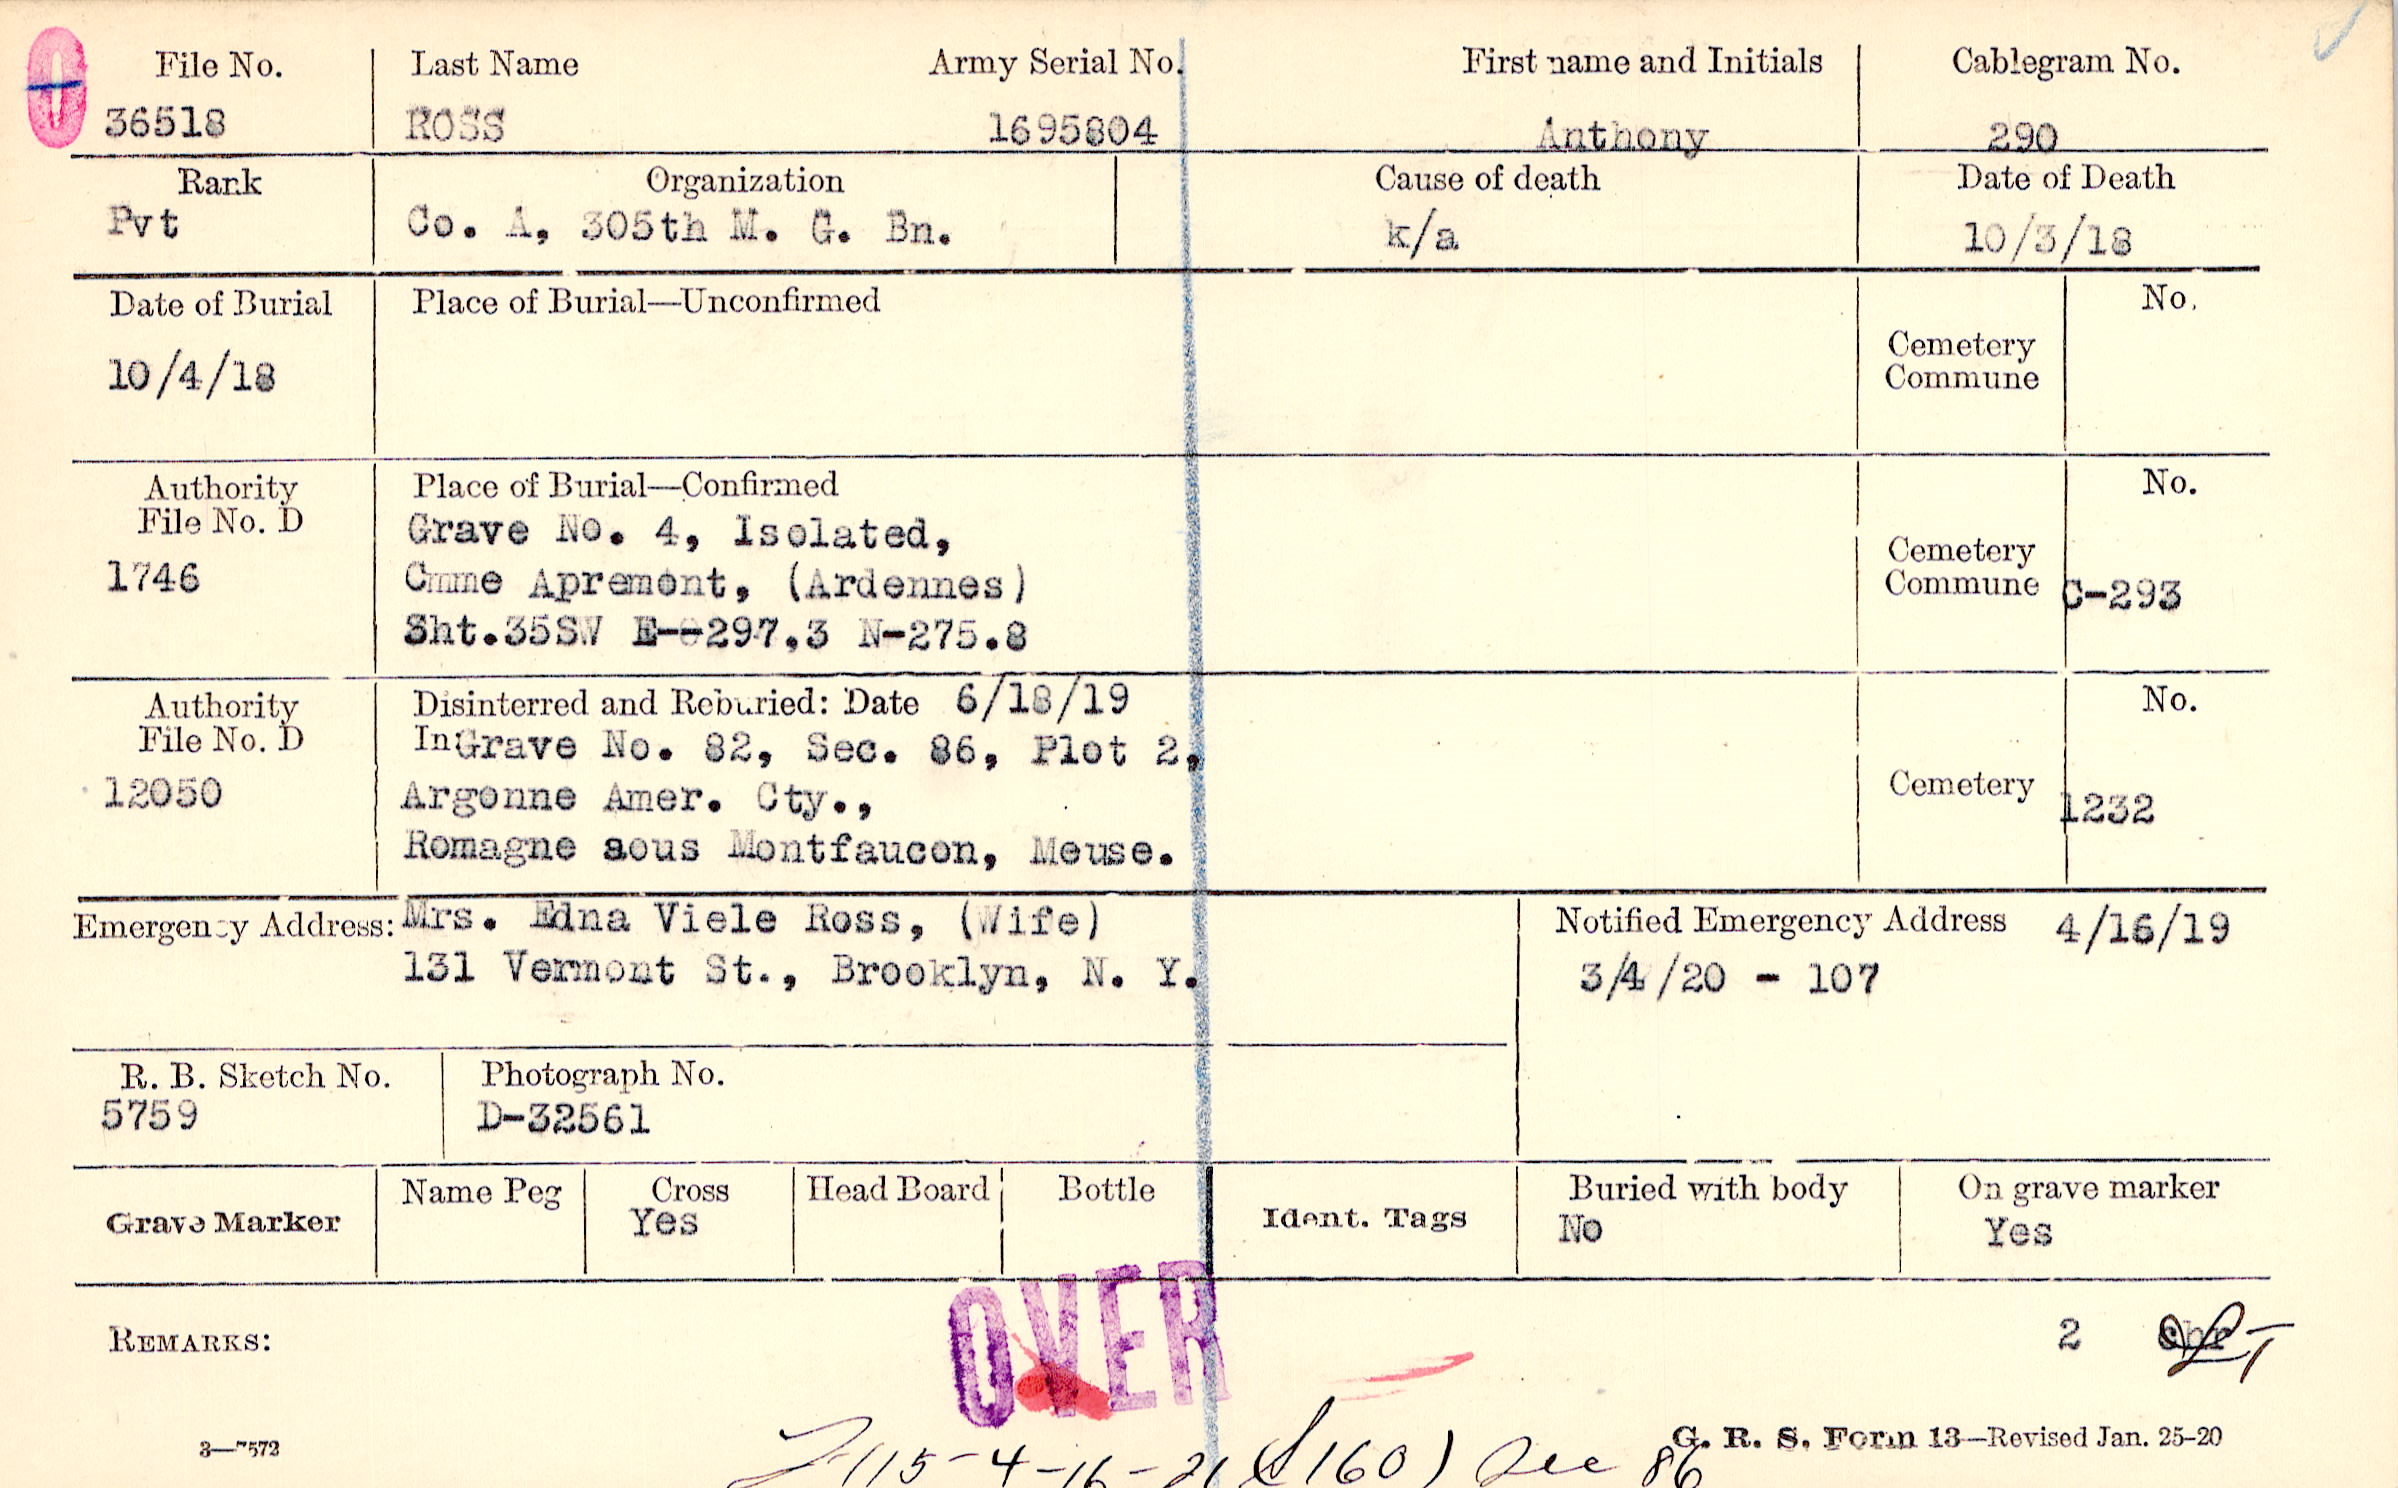 File No. Last Name Army Serial No. First name and Initials Cablegram No.
36518 ROSS 1695804 Anthony 290
Rank Organization Cause of death Date of Death
Pvt Co. A, 305th M. G. Bn. k/a 10/3/18
Date of Burial Place of Burial—Unconfirmed No.
10/4/18
Cemetery
Commune
Authority Place of Burial—Confirmed No.
File No. D
1746
Grave No. 4, Isolated,
Cmme Apremont, (Ardennes)
Sht.35SW E--297.3 N-275.8
Cemetery
Commune C-293
Authority Disinterred and Reburied: Date 6/18/19 No.
File No. D
12050
In Grave No. 82, Sec. 86, Plot 2,
Argonne Amer. Cty.,
Romagne sous Montfaucon, Meuse.
Cemetery 1232
Emergency Address: Mrs. Edna Viele Ross, (Wife)
131 Vermont St., Brooklyn, N. Y.
Notified Emergency Address 4/16/19
3/4/20 - 107
R. B. Sketch No. Photograph No.
5759 D-32561
Grave Marker Name Peg Cross Head Board Bottle Ident. Tags Buried with body On grave marker
Yes No Yes
OVER
REMARKS: 2
115-4-16-21 (S160) See 86
3—7572 G. R. S. Form 13—Revised Jan. 25-20